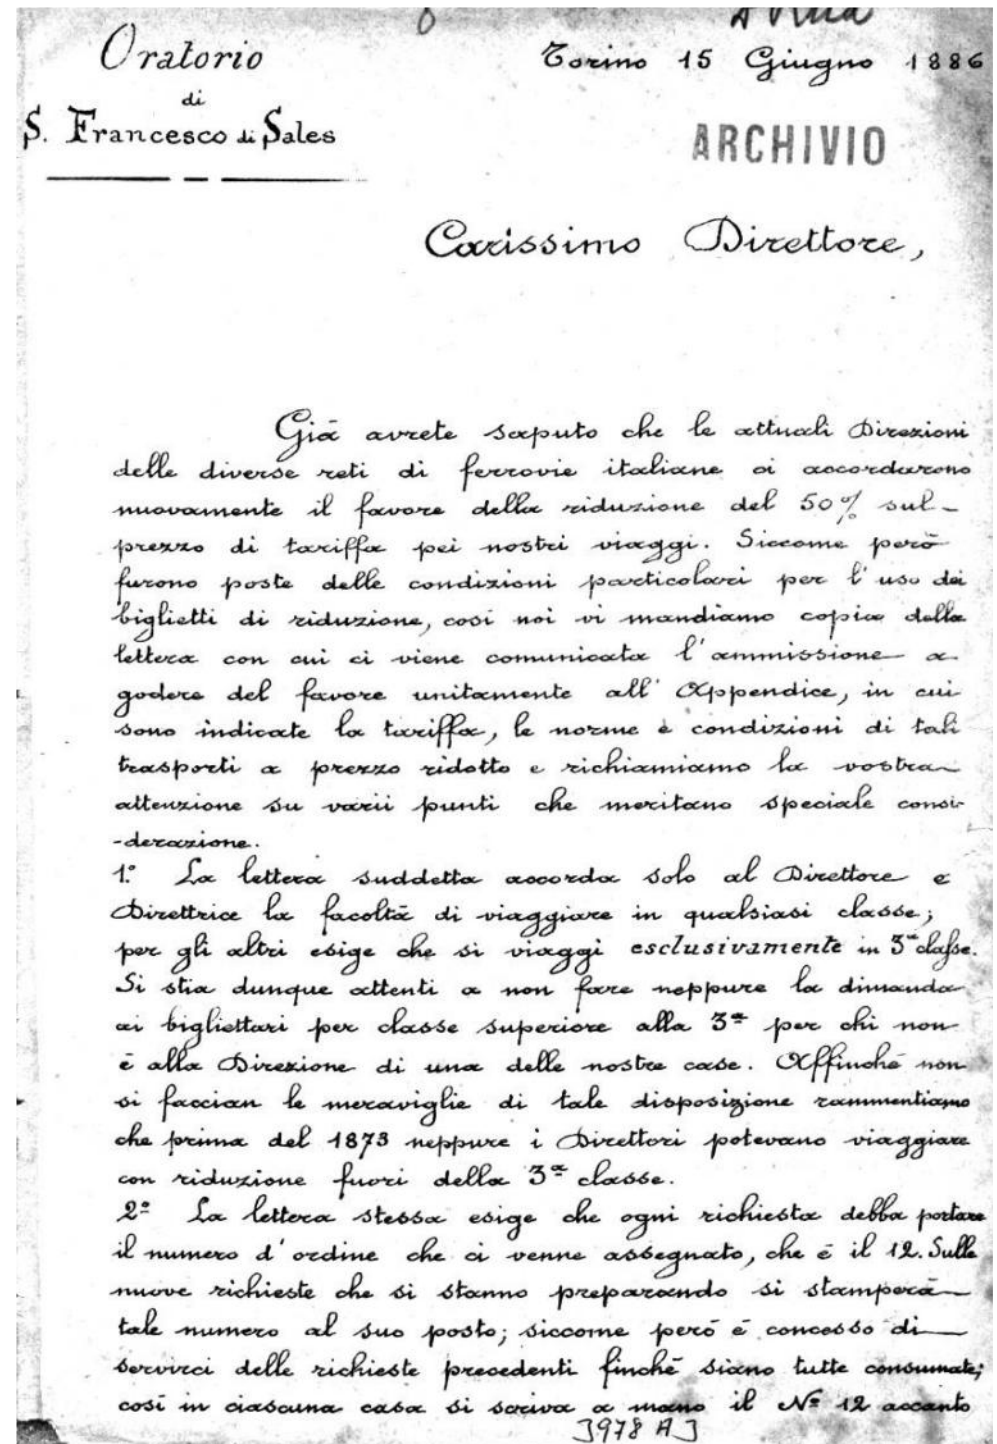 D Rua
Oratorio
di
S. Francesco di Sales
Torino 15 Giugno 1886
ARCHIVIO
Carissimo Direttore,
Già avrete saputo che le attuali Direzioni
delle diverse reti di ferrovie italiane ci accordarono
nuovamente il favore della riduzione del 50% sul
prezzo di tariffa pei nostri viaggi. Siccome però
furono poste delle condizioni particolari per l'uso dei
biglietti di riduzione, così noi vi mandiamo copia della
lettera con cui ci viene comunicata l'ammissione a
godere del favore unitamente all'Appendice, in cui
sono indicate la tariffa, le norme e condizioni di tali
trasporti a prezzo ridotto e richiamiamo la vostra
attenzione su varii punti che meritano speciale consi-
-derazione.
1.° La lettera suddetta accorda solo al Direttore e
Direttrice la facoltà di viaggiare in qualsiasi classe;
per gli altri esige che si viaggi esclusivamente in 3ª classe.
Si stia dunque attenti a non fare neppure la dimanda
ai bigliettari per classe superiore alla 3ª per chi non
è alla Direzione di una delle nostre case. Affinché non
si faccian le meraviglie di tale disposizione rammentiamo
che prima del 1873 neppure i Direttori potevano viaggiare
con riduzione fuori della 3ª classe.
2º La lettera stessa esige che ogni richiesta debba portare
il numero d'ordine che ci venne assegnato, che è il 12. Sulle
nuove richieste che si stanno preparando si stamperà
tale numero al suo posto; siccome però è concesso di
servirci delle richieste precedenti finché siano tutte consumate;
così in ciascuna casa si scriva a mano il Nº 12 accanto
3978 A]